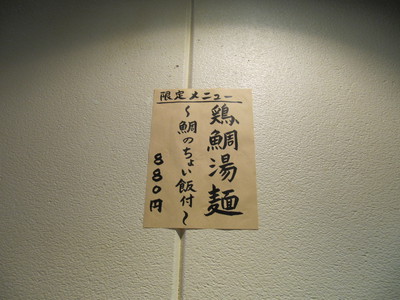 限定メニュー
鶏鯛湯麺
〜鯛のちょい飯付〜
880円